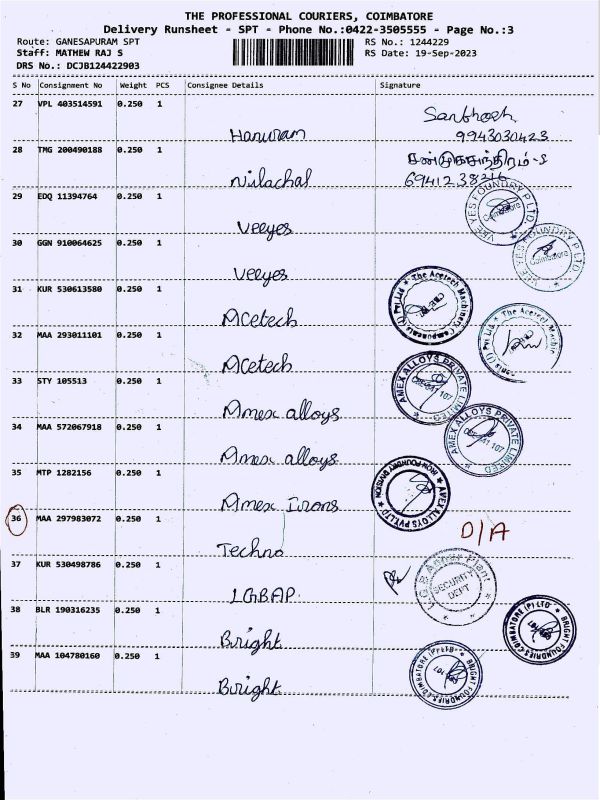 THE PROFESSIONAL COURIERS, COIMBATORE
Delivery Runsheet - SPT - Phone No.:0422-3505555 - Page No.:3
Route: GANESAPURAM SPT RS No.: 1244229
Staff: MATHEW RAJ S RS Date: 19-Sep-2023
DRS No.: DCJB124422903
S No Consignment No Weight PCS Consignee Details Signature
27 VPL 403514591 0.250 1
Hanuram Santhosh
9943030423
28 TMG 200490188 0.250 1
Nilachal
29 EDQ 11394764 0.250 1
Veeyes VEE YES FOUNDRY P LTD. Coimbatore
30 GGN 910064625 0.250 1
Veeyes VEE YES FOUNDRY P LTD Coimbatore
31 KUR 530613580 0.250 1
Acetech The Acetech Machinery Components (I) Pvt Ltd
32 MAA 293011101 0.250 1
Acetech The Acetech Machin (I) Pvt Ltd
33 STY 105513 0.250 1
Amex alloys AMEX ALLOYS PRIVATE LIMITED
34 MAA 572067918 0.250 1
Amex alloys AMEX ALLOYS PRIVATE LIMITED
35 MTP 1282156 0.250 1
Amex Irons AMEX ALLOYS PVT LTD IRON FOUNDRY DIVISION
36 MAA 297983072 0.250 1
Techno D/A
37 KUR 530498786 0.250 1
LGBAP L.G.B Annur Plant SECURITY DEPT
38 BLR 190316235 0.250 1
Bright BRIGHT FOUNDRIES COIMBATORE (P) LTD
39 MAA 104780160 0.250 1
Bright BRIGHT FOUNDRIES COIMBATORE (P) LTD